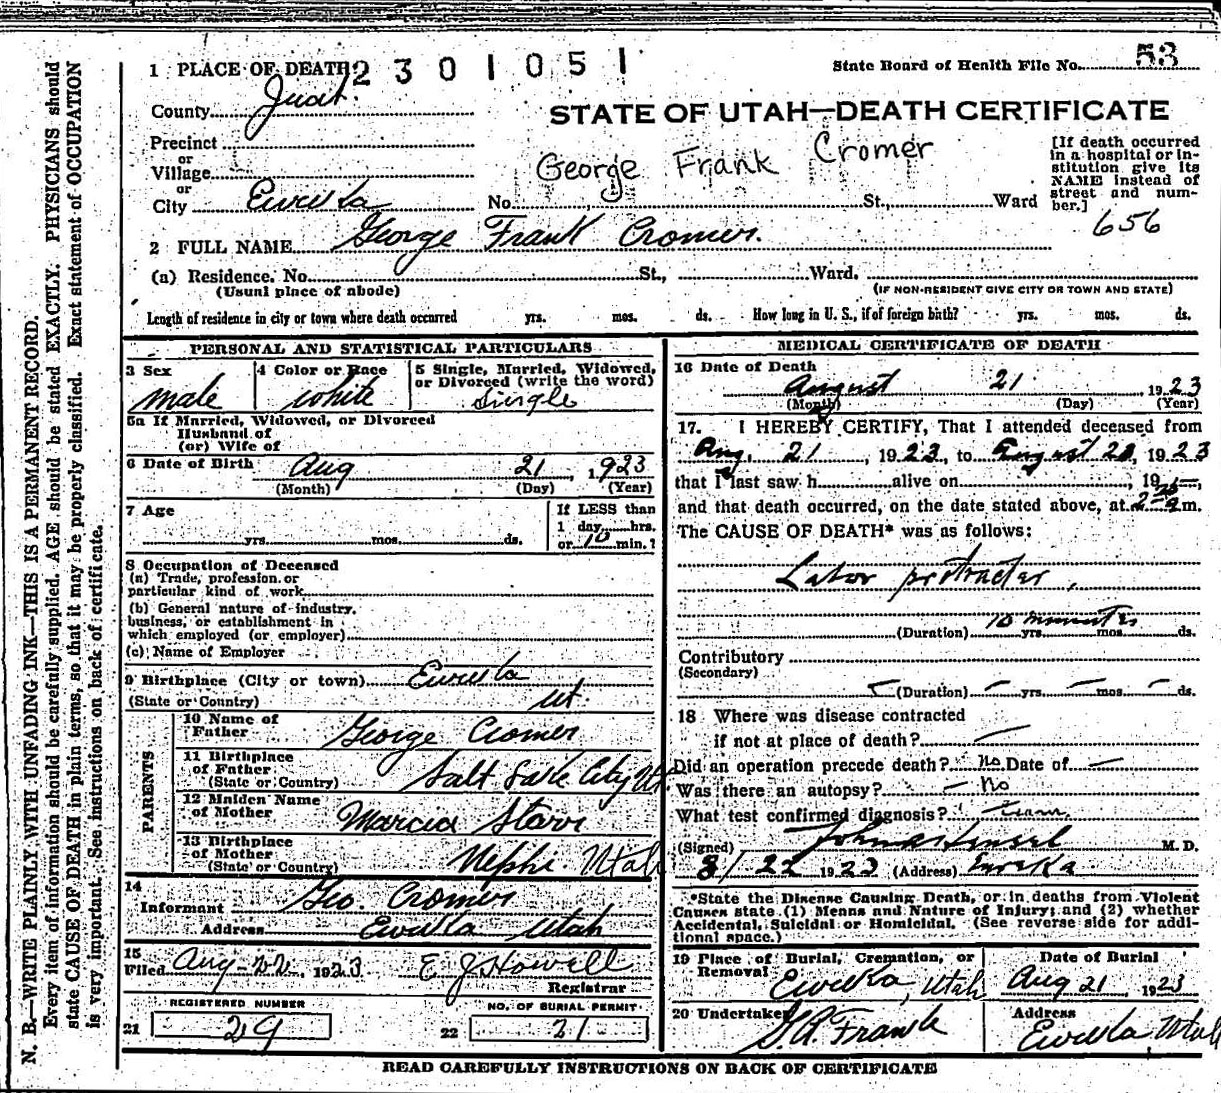 1 PLACE OF DEATH 2301051
State Board of Health File No. 53
County Juab
STATE OF UTAH—DEATH CERTIFICATE
Precinct
or
Village
or
City Eureka No. St., Ward
George Frank Cromer
[If death occurred in a hospital or institution give its NAME instead of street and number.]
656
2 FULL NAME George Frank Cromer.
(a) Residence. No. St., Ward.
(Usual place of abode) (IF NON-RESIDENT GIVE CITY OR TOWN AND STATE)
Length of residence in city or town where death occurred yrs. mos. ds. How long in U. S., if of foreign birth? yrs. mos. ds.
PERSONAL AND STATISTICAL PARTICULARS
3 Sex male
4 Color or Race white
5 Single, Married, Widowed, or Divorced (write the word) Single
5a If Married, Widowed, or Divorced
Husband of
(or) Wife of
6 Date of Birth Aug 21, 1923
(Month) (Day) (Year)
7 Age yrs. mos. ds.
If LESS than
1 day hrs.
or 10 min.?
8 Occupation of Deceased
(a) Trade, profession or
particular kind of work
(b) General nature of industry,
business, or establishment in
which employed (or employer)
(c) Name of Employer
9 Birthplace (City or town) Eureka
(State or Country) Ut.
PARENTS
10 Name of Father George Cromer
11 Birthplace of Father (State or Country) Salt Lake City Ut.
12 Maiden Name of Mother Marcia Starr
13 Birthplace of Mother (State or Country) Nephi Utah
14
Informant Geo. Cromer
Address Eureka Utah
15
Filed Aug-22, 1923 E J Howell
Registrar
REGISTERED NUMBER
21 29
NO. OF BURIAL PERMIT
22 21
MEDICAL CERTIFICATE OF DEATH
16 Date of Death
August 21, 1923
(Month) (Day) (Year)
17. I HEREBY CERTIFY, That I attended deceased from
Aug. 21, 1923, to August 21, 1923
that I last saw h alive on , 19
and that death occurred, on the date stated above, at m.
The CAUSE OF DEATH* was as follows:
Labor protracter,
10 minutes
(Duration) yrs. mos. ds.
Contributory
(Secondary)
(Duration) — yrs. — mos. — ds.
18 Where was disease contracted
if not at place of death? —
Did an operation precede death? no Date of —
Was there an autopsy? — No
What test confirmed diagnosis?
(Signed) M. D.
8/22 1923 (Address) Eureka
*State the Disease Causing Death, or in deaths from Violent
Causes state (1) Means and Nature of Injury; and (2) whether
Accidental, Suicidal or Homicidal. (See reverse side for addi-
tional space.)
19 Place of Burial, Cremation, or Removal Eureka, Utah
Date of Burial
Aug 21 1923
20 Undertaker
Address
Eureka Utah
READ CAREFULLY INSTRUCTIONS ON BACK OF CERTIFICATE
N. B.—WRITE PLAINLY WITH UNFADING INK—THIS IS A PERMANENT RECORD.
Every item of information should be carefully supplied. AGE should be stated EXACTLY. PHYSICIANS should
state CAUSE OF DEATH in plain terms, so that it may be properly classified. Exact statement of OCCUPATION
is very important. See instructions on back of certificate.